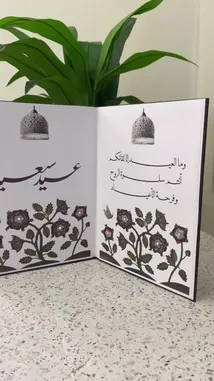 وما العيد إلا لقائكم
أنتم سلوة الروح
وفرحة الأعياد
عيد سعيد